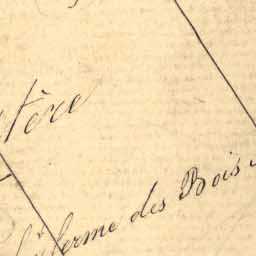 tère
ferme des Bois